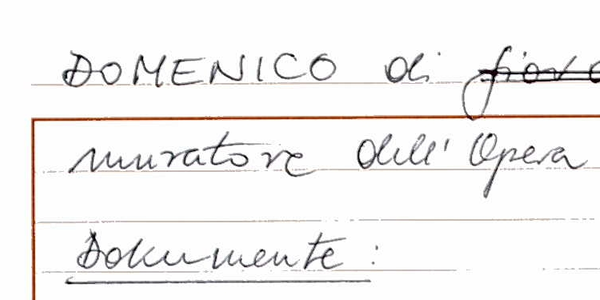 DOMENICO di
muratore dell' Opera
Dokumente :